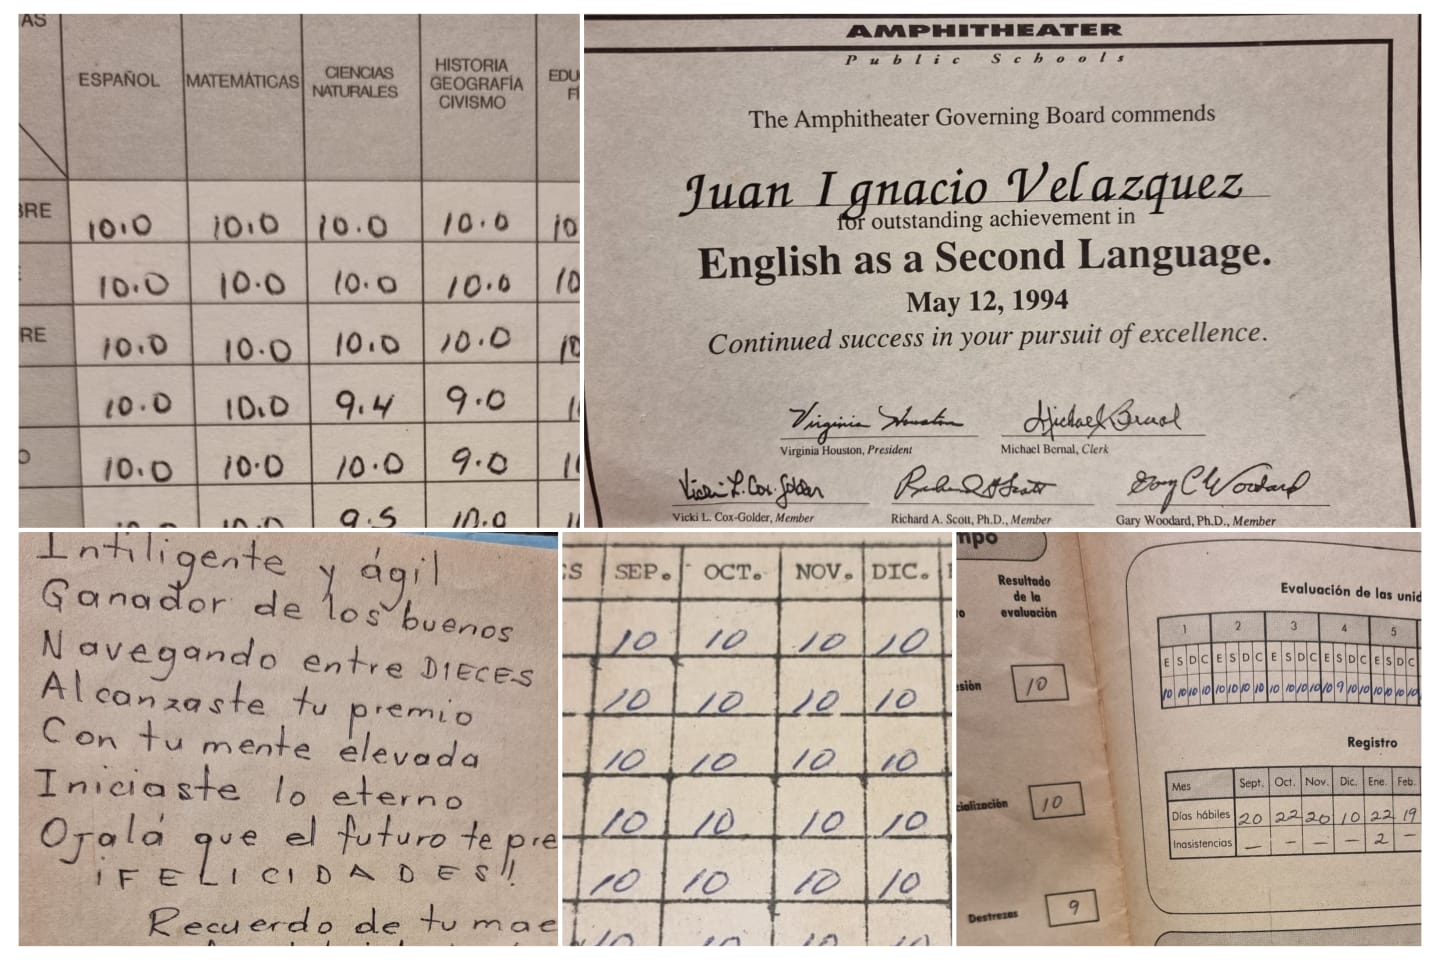 AS
ESPAÑOL MATEMÁTICAS CIENCIAS NATURALES HISTORIA GEOGRAFÍA CIVISMO EDU FÍ
BRE 10.0 10.0 10.0 10.0 10
10.0 10.0 10.0 10.0 10
RE 10.0 10.0 10.0 10.0 10
10.0 10.0 9.4 9.0 1
O 10.0 10.0 10.0 9.0 1
10.0 10.0 9.5 10.0 1
AMPHITHEATER
Public Schools
The Amphitheater Governing Board commends
Juan Ignacio Velazquez
for outstanding achievement in
English as a Second Language.
May 12, 1994
Continued success in your pursuit of excellence.
Virginia Houston Michael Bernal
Virginia Houston, President Michael Bernal, Clerk
Vicki L. Cox-Golder Richard A Scott Gary C Woodard
Vicki L. Cox-Golder, Member Richard A. Scott, Ph.D., Member Gary Woodard, Ph.D., Member
Intiligente y ágil
Ganador de los buenos
Navegando entre DIECES
Alcanzaste tu premio
Con tu mente elevada
Iniciaste lo eterno
Ojalá que el futuro te pre
¡FELICIDADES!!
Recuerdo de tu mae
S SEP. OCT. NOV. DIC.
10 10 10 10
10 10 10 10
10 10 10 10
10 10 10 10
10 10 10 10
10 10 10 10
mpo
Resultado
de la
evaluación
sión 10
cialización 10
Destrezas 9
Evaluación de las unid
1 2 3 4 5
E S D C E S D C E S D C E S D C E S D C
10 10 10 10 10 10 10 10 10 10 10 10 10 9 10 10 10 10 10 10
Registro
Mes Sept. Oct. Nov. Dic. Ene. Feb.
Días hábiles 20 22 20 10 22 19
Inasistencias — — — — 2 —